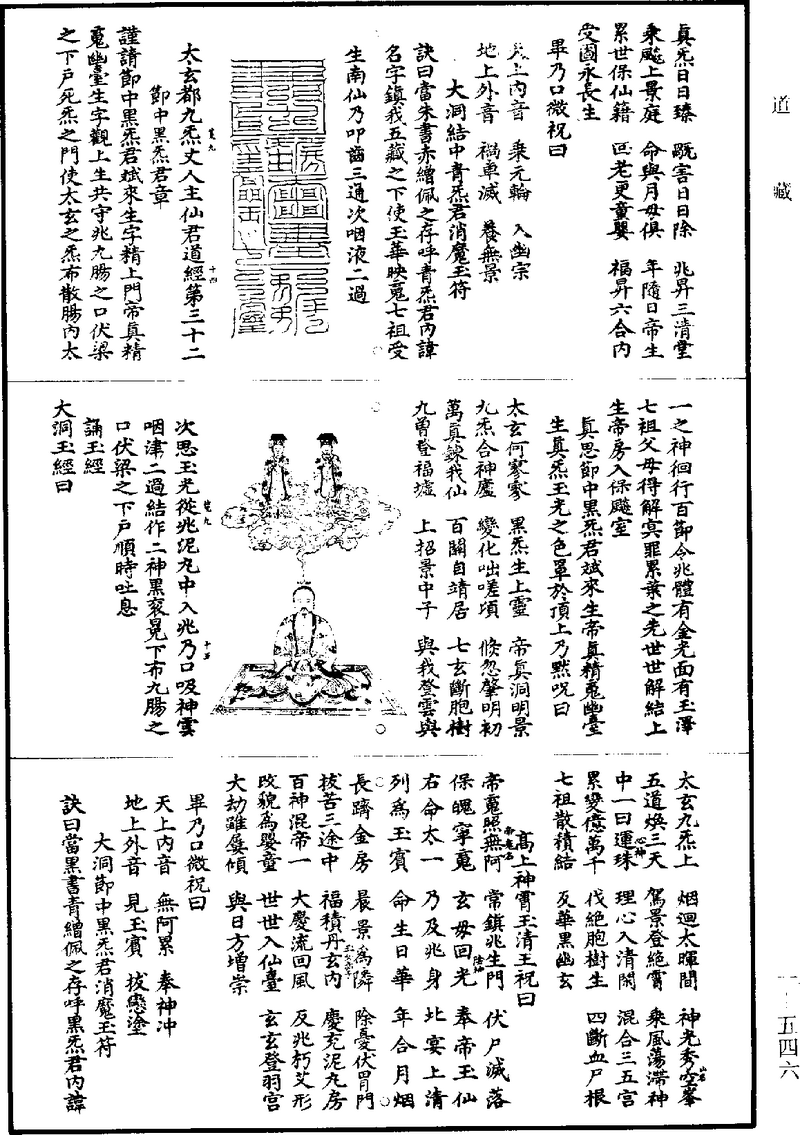 道藏
真炁日日臻　厩害日日除　兆昇三清堂
乘飈上景庭　命與月母俱　年隨日帝生
累世保仙籍　回老更童嬰　福昇六合内
受國永長生
畢乃口微祝曰
天上内音　乘元輪　入幽宗
地上外音　禍車滅　養無景
大洞結中青炁君消魔玉符
訣曰當朱書赤繒佩之存呼青炁君内諱
名字鎮我五藏之下使玉華映𩲸七祖受
生南仙乃叩齒三通次咽液二過
太玄都九炁丈人主仙君道經第三十二
節中黑炁君章
謹請節中黑炁君斌來生字精上門帝真精
𩲸幽臺生字觀上生共守兆九腸之口伏梁
之下戸死炁之門使太玄之炁布散腸内太
一之神徊行百節令兆體有金光面有玉澤
七祖父母得解冥罪累葉之先世世解結上
生帝房入保飈室
真思節中黑炁君斌來生帝真精𩲸幽臺
生真炁玉光之色罩於頂上乃黙呪曰
太玄何寥寥　黑炁生上靈　帝真洞明景
九炁合神廬　變化咄嗟頃　倏忽肇明初
萬真鍊我仙　百關自靖居　七玄斷胞樹
九曽登福墟　上招景中子　與我登雲輿
次思玉光從兆泥丸中入兆乃口吸神雲
咽津二過結作二神黑衮冕下布九腸之
口伏梁之下戸順時吐息
誦玉經
大洞玉經曰
太玄九炁上　烟迴太暉間　神光秀空峯
五道煥三天　駕景登絶霄　乘風蕩滯神
中一曰運珠　理心入清閑　混合三五宫
累變億萬千　伐絶胞樹生　四斷血尸根
七祖散積結　反華黑幽玄
高上神霄玉清王祝曰
帝𩲸照無阿　常鎮兆生門　伏尸滅落
保魄寧𩲸　玄母回光　奉帝玉仙
右命太一　乃及兆身　北宴上清
列爲玉賓　命生日華　年合月烟
長躋金房　晨景爲隣　除憂伏胃門
拔苦三途中　福積丹玄内　慶充泥丸房
百神混帝一　大慶流回風　反兆朽艾形
改貌爲嬰童　世世入仙臺　玄玄登羽宫
大劫雖屢傾　與日方增崇
畢乃口微祝曰
天上内音　無阿累　奉神冲
地上外音　見玉賓　拔戀塗
大洞節中黑炁君消魔玉符
訣曰當黑書青繒佩之存呼黑炁君内諱
一‧五四六